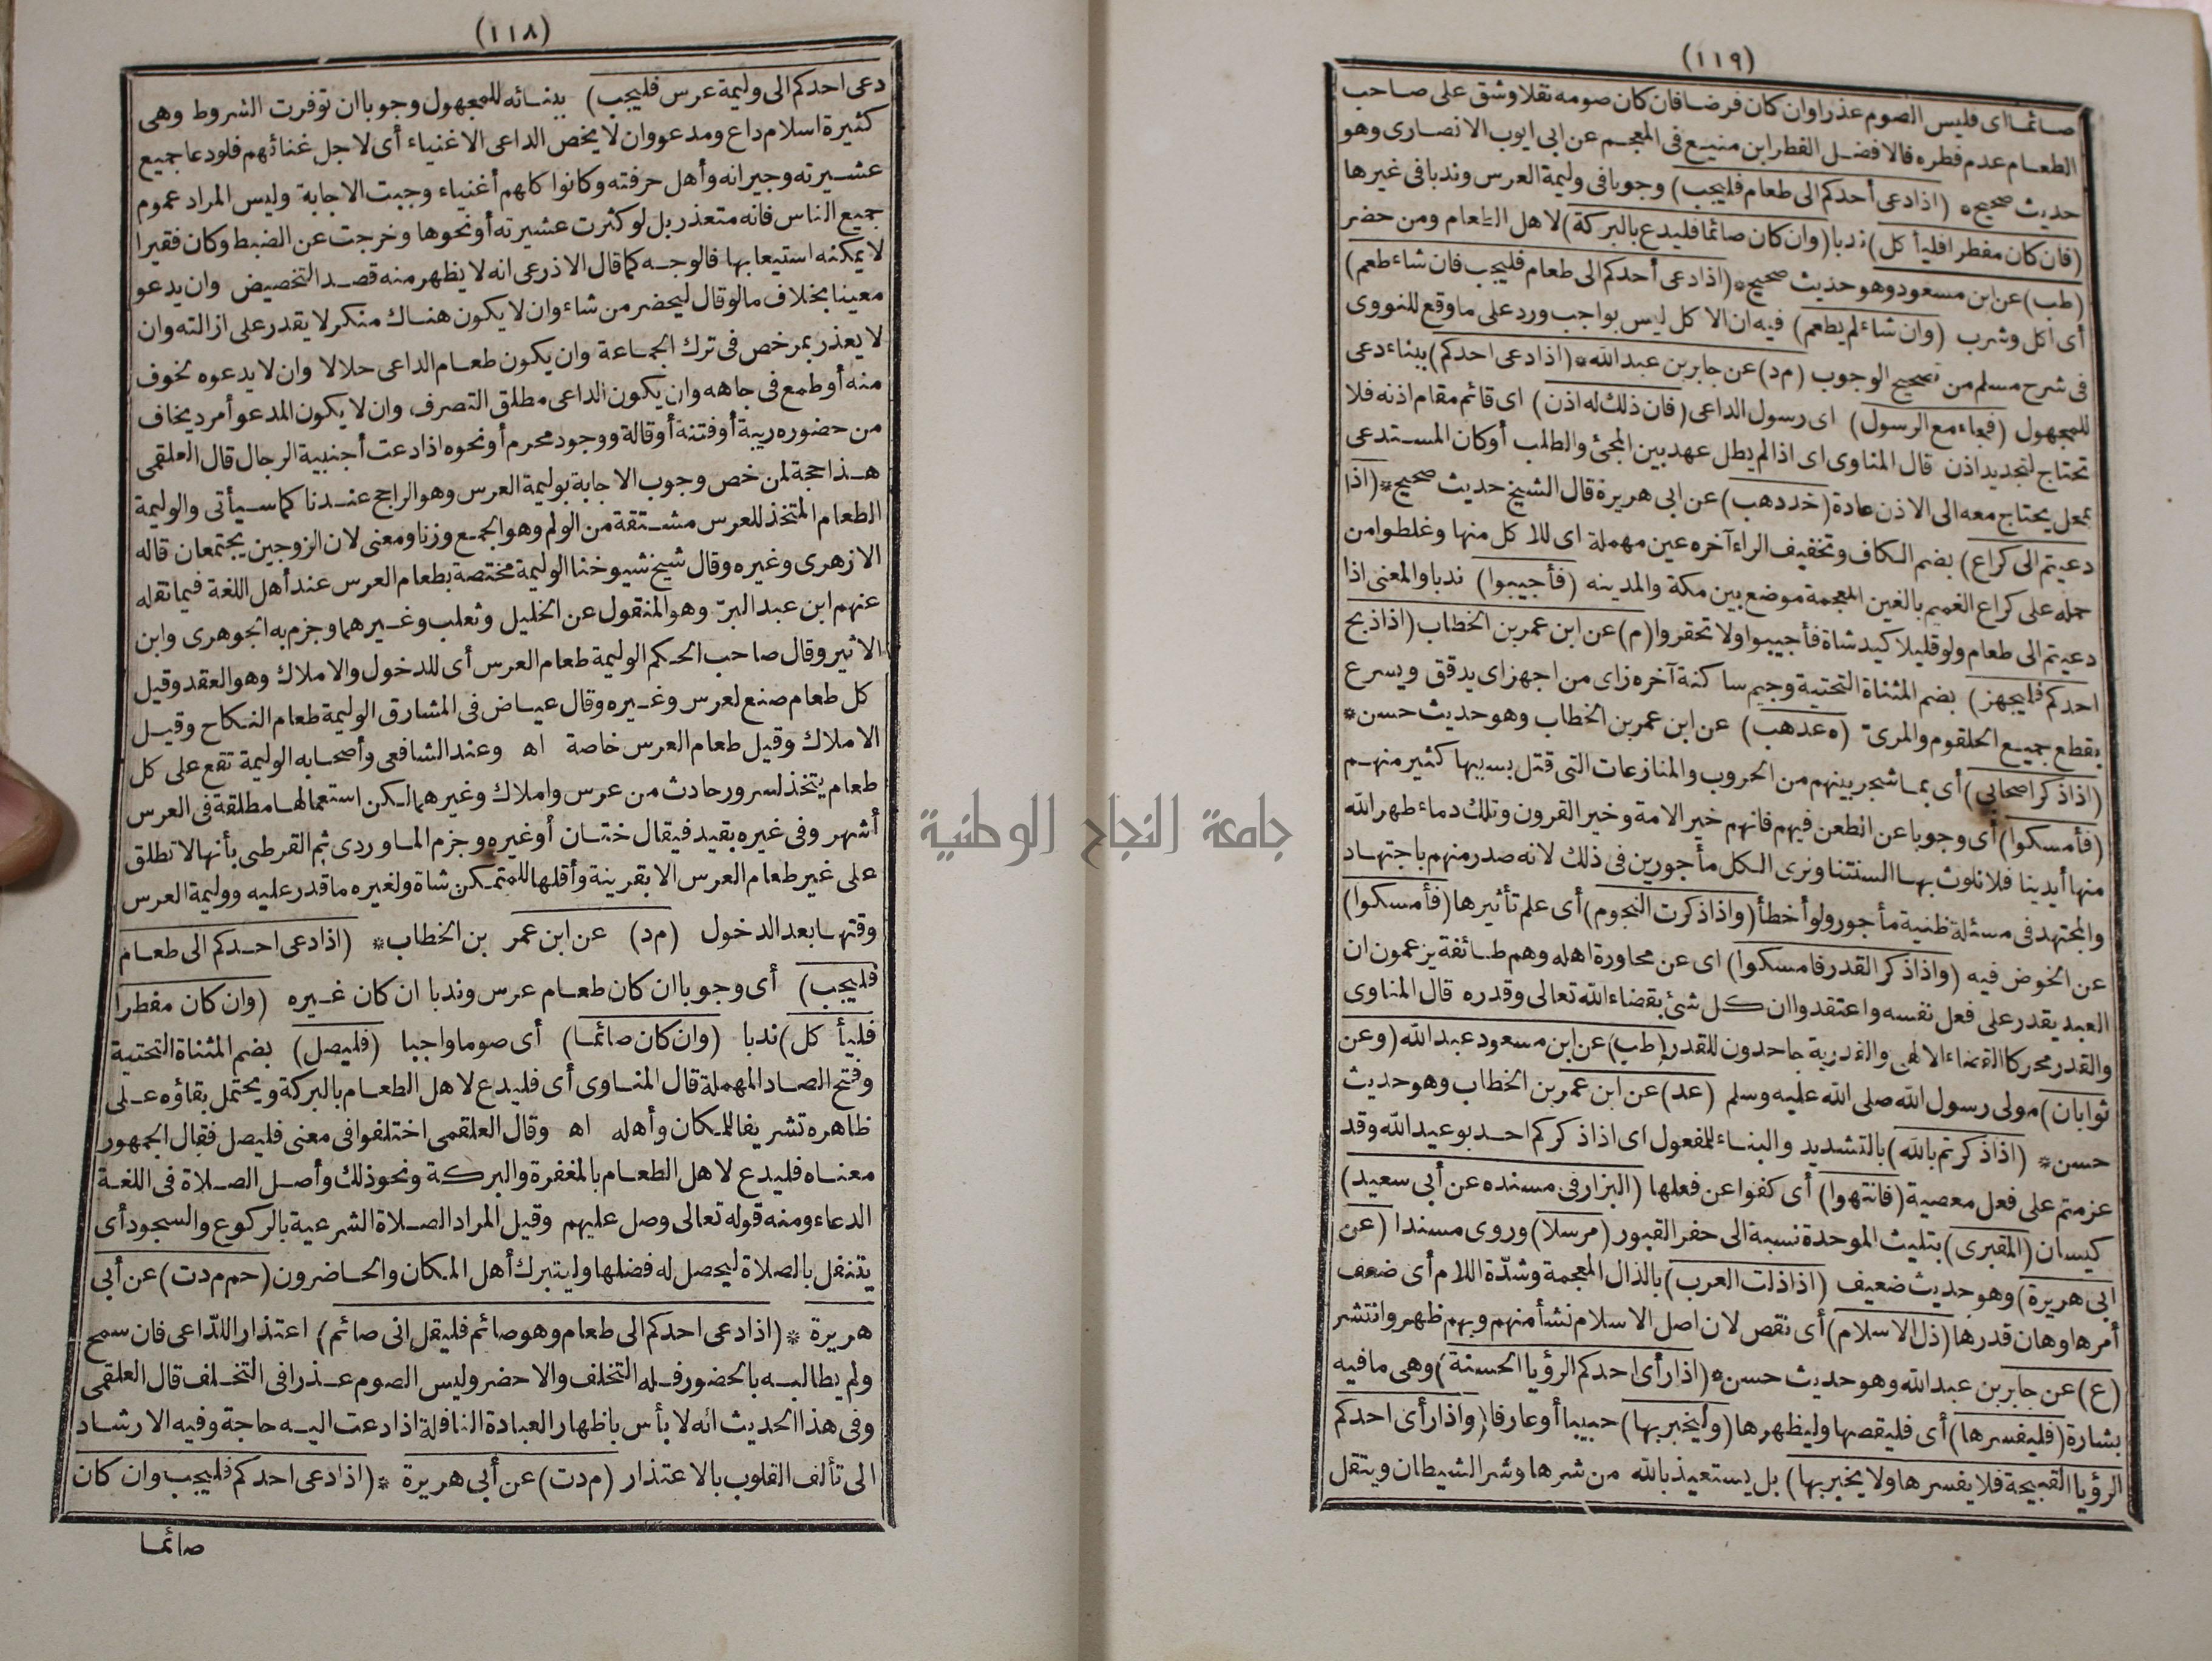 (١١٨)
دعى احدكم الى وليمة عرس فليجب) ببنائه للمجهول وجوبا ان توفرت الشروط وهى
كثيرة اسلام داع ومدعو وان لا يخص الداعى الاغنياء أى لاجل غنائهم فلودعا جميع
عشيرته وجيرانه وأهل حرفته وكانوا كلهم أغنياء وجبت الاجابة وليس المراد عموم
جميع الناس فانه متعذر بل لو كثرت عشيرته أونحوها وخرجت عن الضبط وكان فقيرا
لا يمكنه استيعابها فالوجه كما قال الاذرعى انه لا يظهر منه قصد التخصيص وان يدعو
معينا بخلاف مالوقال ليحضر من شاء وان لا يكون هناك منكر لا يقدر على ازالته وان
لا يعذر بمرخص فى ترك الجماعة وان يكون طعام الداعى حلالا وان لا يدعوه لخوف
منه أوطمع فى جاهه وان يكون الداعى مطلق التصرف وان لا يكون المدعو أمرد يخاف
من حضوره ريبة أوفتنة أوقالة ووجود محرم أونحوه اذا دعت أجنبية الرجال قال العلقمى
هذا حجة لمن خص وجوب الاجابة بوليمة العرس وهو الراجح عندنا كما سيأتى والوليمة
الطعام المتخذ للعرس مشتقة من الولم وهو الجمع وزنا ومعنى لان الزوجين يجتمعان قاله
الازهرى وغيره وقال شيخ شيوخنا الوليمة مختصة بطعام العرس عند أهل اللغة فيما نقله
عنهم ابن عبد البرّ وهو المنقول عن الخليل وثعلب وغيرهما وجزم به الجوهرى وابن
الاثير وقال صاحب الحكم الوليمة طعام العرس أى للدخول والاملاك وهو العقد وقيل
كل طعام صنع لعرس وغيره وقال عياض فى المشارق الوليمة طعام النكاح وقيل
الاملاك وقيل طعام العرس خاصة اه وعند الشافعى وأصحابه الوليمة تقع على كل
طعام يتخذ لسرور حادث من عرس واملاك وغيرهما لكن استعمالها مطلقة فى العرس
أشهر وفى غيره بقيد فيقال ختان أوغيره وجزم الماوردى ثم القرطبى بأنها لا تطلق
على غير طعام العرس الا بقرينة وأقلها للمتمكن شاة ولغيره ماقدر عليه ووليمة العرس
وقتها بعد الدخول (م د) عن ابن عمر بن الخطاب* (اذا دعى احدكم الى طعام
فليجب) أى وجوبا ان كان طعام عرس وندبا ان كان غيره (وان كان مفطرا
فليأ كل) ندبا (وان كان صائما) أى صوما واجبا (فليصل) بضم المثناة التحتية
وفتح الصاد المهملة قال المناوى أى فليدع لاهل الطعام بالبركة ويحتمل بقاؤه على
ظاهره تشريفا للمكان وأهله اه وقال العلقمى اختلفوا فى معنى فليصل فقال الجمهور
معناه فليدع لاهل الطعام بالمغفرة والبركة ونحوذلك وأصل الصلاة فى اللغة
الدعاء ومنه قوله تعالى وصل عليهم وقيل المراد الصلاة الشرعية بالركوع والسجود أى
يتنفل بالصلاة ليحصل له فضلها وليتبرك أهل المكان والحاضرون (حم م د ت) عن أبى
هريرة * (اذا دعى احدكم الى طعام وهو صائم فليقل انى صائم) اعتذارا للداعى فان سمح
ولم يطالبه بالحضور فله التخلف والاحضر وليس الصوم عذرا فى التخلف قال العلقمى
وفى هذا الحديث انه لا بأس باظهار العبادة النافلة اذا دعت اليه حاجة وفيه الارشاد
الى تألف القلوب بالاعتذار (م د ت) عن أبى هريرة *(اذا دعى احدكم فليجب وان كان
صائما
(١١٩)
صائما) اى فليس الصوم عذرا وان كان فرضا فان كان صومه نفلا وشق على صاحب
الطعام عدم فطره فالافضل الفطر ابن منيع فى المعجم عن ابى ايوب الانصارى وهو
حديث صحيح* (اذا دعى أحدكم الى طعام فليجب) وجوبا فى وليمة العرس وندبا فى غيرها
(فان كان مفطرا فليأ كل) ندبا (وان كان صائما فليدع بالبركة) لاهل الطعام ومن حضر
(طب) عن ابن مسعود وهو حديث صحيح*(اذا دعى أحدكم الى طعام فليجب فان شاء طعم)
أى أكل وشرب (وان شاء لم يطعم) فيه ان الاكل ليس بواجب ورد على ماوقع للنووى
فى شرح مسلم من تصحيح الوجوب (م د) عن جابر بن عبد الله *(اذا دعى احدكم) ببناء دعى
للمجهول (فجاء مع الرسول) اى رسول الداعى (فان ذلك له اذن) اى قائم مقام اذنه فلا
تحتاج لتجديد اذن قال المناوى اى اذا لم يطل عهد بين المجئ والطلب أوكان المستدعى
بمحل يحتاج معه الى الاذن عادة (خد د هب) عن ابى هريرة قال الشيخ حديث صحيح*(اذا
دعيتم الى كراع) بضم الكاف وتخفيف الراء آخره عين مهملة اى للاكل منها وغلطوا من
حمله على كراع الغميم بالغين المعجمة موضع بين مكة والمدينه (فأجيبوا) ندبا والمعنى اذا
دعيتم الى طعام ولو قليلا كيد شاة فأجيبوا ولا تحقروا (م) عن ابن عمر بن الخطاب (اذا ذبح
احدكم فليجهز) بضم المثناة التحتية وجيم ساكنة آخره زاى من اجهز اى يدقق ويسرع
بقطع جميع الحلقوم والمرئ (ه عد هب) عن ابن عمر بن الخطاب وهو حديث حسن*
(اذا ذكر اصحابى) أى بما شجر بينهم من الحروب والمنازعات التى قتل بسببها كثير منهم
(فأمسكوا) أى وجوبا عن الطعن فيهم فانهم خير الامة وخير القرون وتلك دماء طهر الله
منها أيدينا فلا نلوث بها ألسنتنا ونرى الكل مأجورين فى ذلك لانه صدر منهم باجتهاد
والمجتهد فى مسئلة ظنية مأجور ولو أخطأ (واذا ذكرت النجوم) أى علم تأثيرها (فأمسكوا)
عن الخوض فيه (واذا ذكر القدر فامسكوا) اى عن محاورة اهله وهم طائفة يزعمون ان
العبد يقدر على فعل نفسه واعتقدوا ان كل شئ بقضاء الله تعالى وقدره قال المناوى
والقدر محركا القضاء الالهى والقدرية جاحدون للقدر (طب) عن ابن مسعود عبد الله (وعن
ثوابان) مولى رسول الله صلى الله عليه وسلم (عد) عن ابن عمر بن الخطاب وهو حديث
حسن* (اذا ذكرتم بالله) بالتشديد والبناء للمفعول اى اذا ذكركم احد بوعيد الله وقد
عزمتم على فعل معصية (فانتهوا) أى كفوا عن فعلها (البزار فى مسنده عن أبى سعيد)
كيسان (المقبرى) بتليث الموحدة نسبة الى حفر القبور (مرسلا) وروى مسندا (عن
ابى هريرة) وهو حديث ضعيف (اذا ذلت العرب) بالذال المعجمة وشدّة اللام أى ضعف
أمرها وهان قدرها (ذل الاسلام) أى نقص لان اصل الاسلام نشأ منهم وبهم ظهر وانتشر
(ع) عن جابر بن عبد الله وهو حديث حسن*(اذا رأى احدكم الرؤيا الحسنة) وهى مافيه
بشارة (فليفسرها) أى فليقصها وليظهرها (وليخبر بها) حبيبا أوعارفا (واذا رأى احدكم
الرؤيا القبيحة فلا يفسرها ولا يخبر بها) بل يستعيذ بالله من شرها وشر الشيطان ويتفل
جامعة النجاح الوطنية